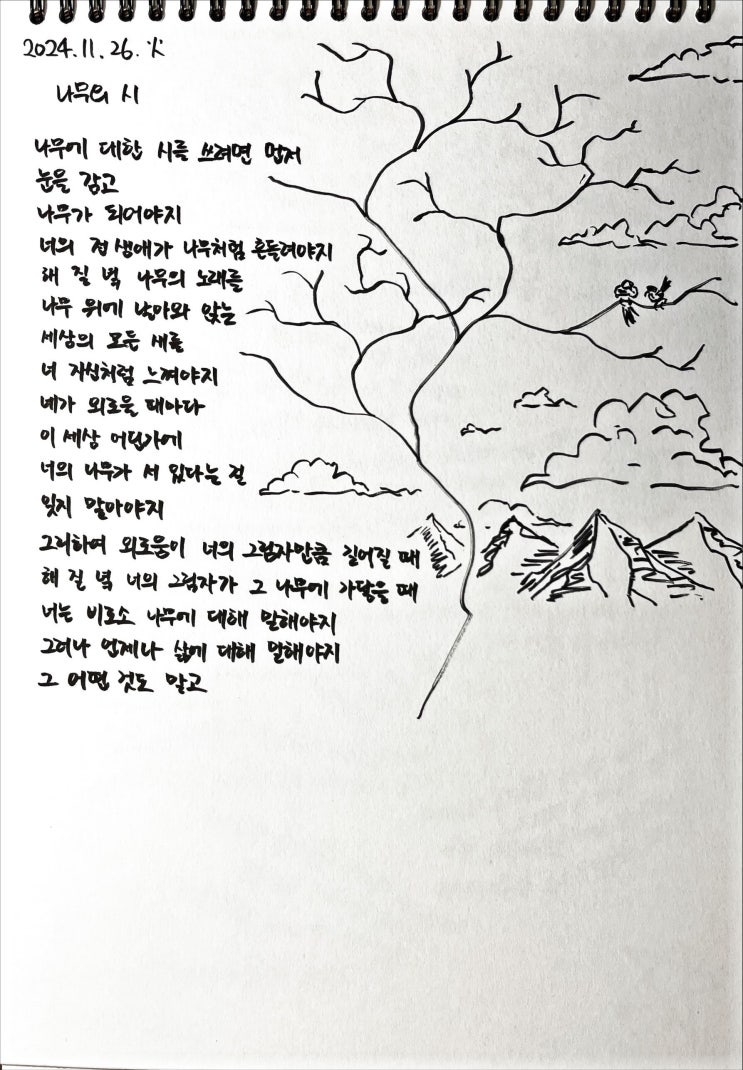 2024.11.26.火
나무의 시
나무에 대한 시를 쓰려면 먼저
눈을 감고
나무가 되어야지
너의 전 생애가 나무처럼 흔들려야지
해 질 녘 나무의 노래를
나무 위에 날아와 앉는
세상의 모든 새를
너 자신처럼 느껴야지
네가 외로울 때마다
이 세상 어딘가에
너의 나무가 서 있다는 걸
잊지 말아야지
그리하여 외로움이 너의 그림자만큼 길어질 때
해 질 녘 너의 그림자가 그 나무에 가닿을 때
너는 비로소 나무에 대해 말해야지
그러나 언제나 삶에 대해 말해야지
그 어떤 것도 말고